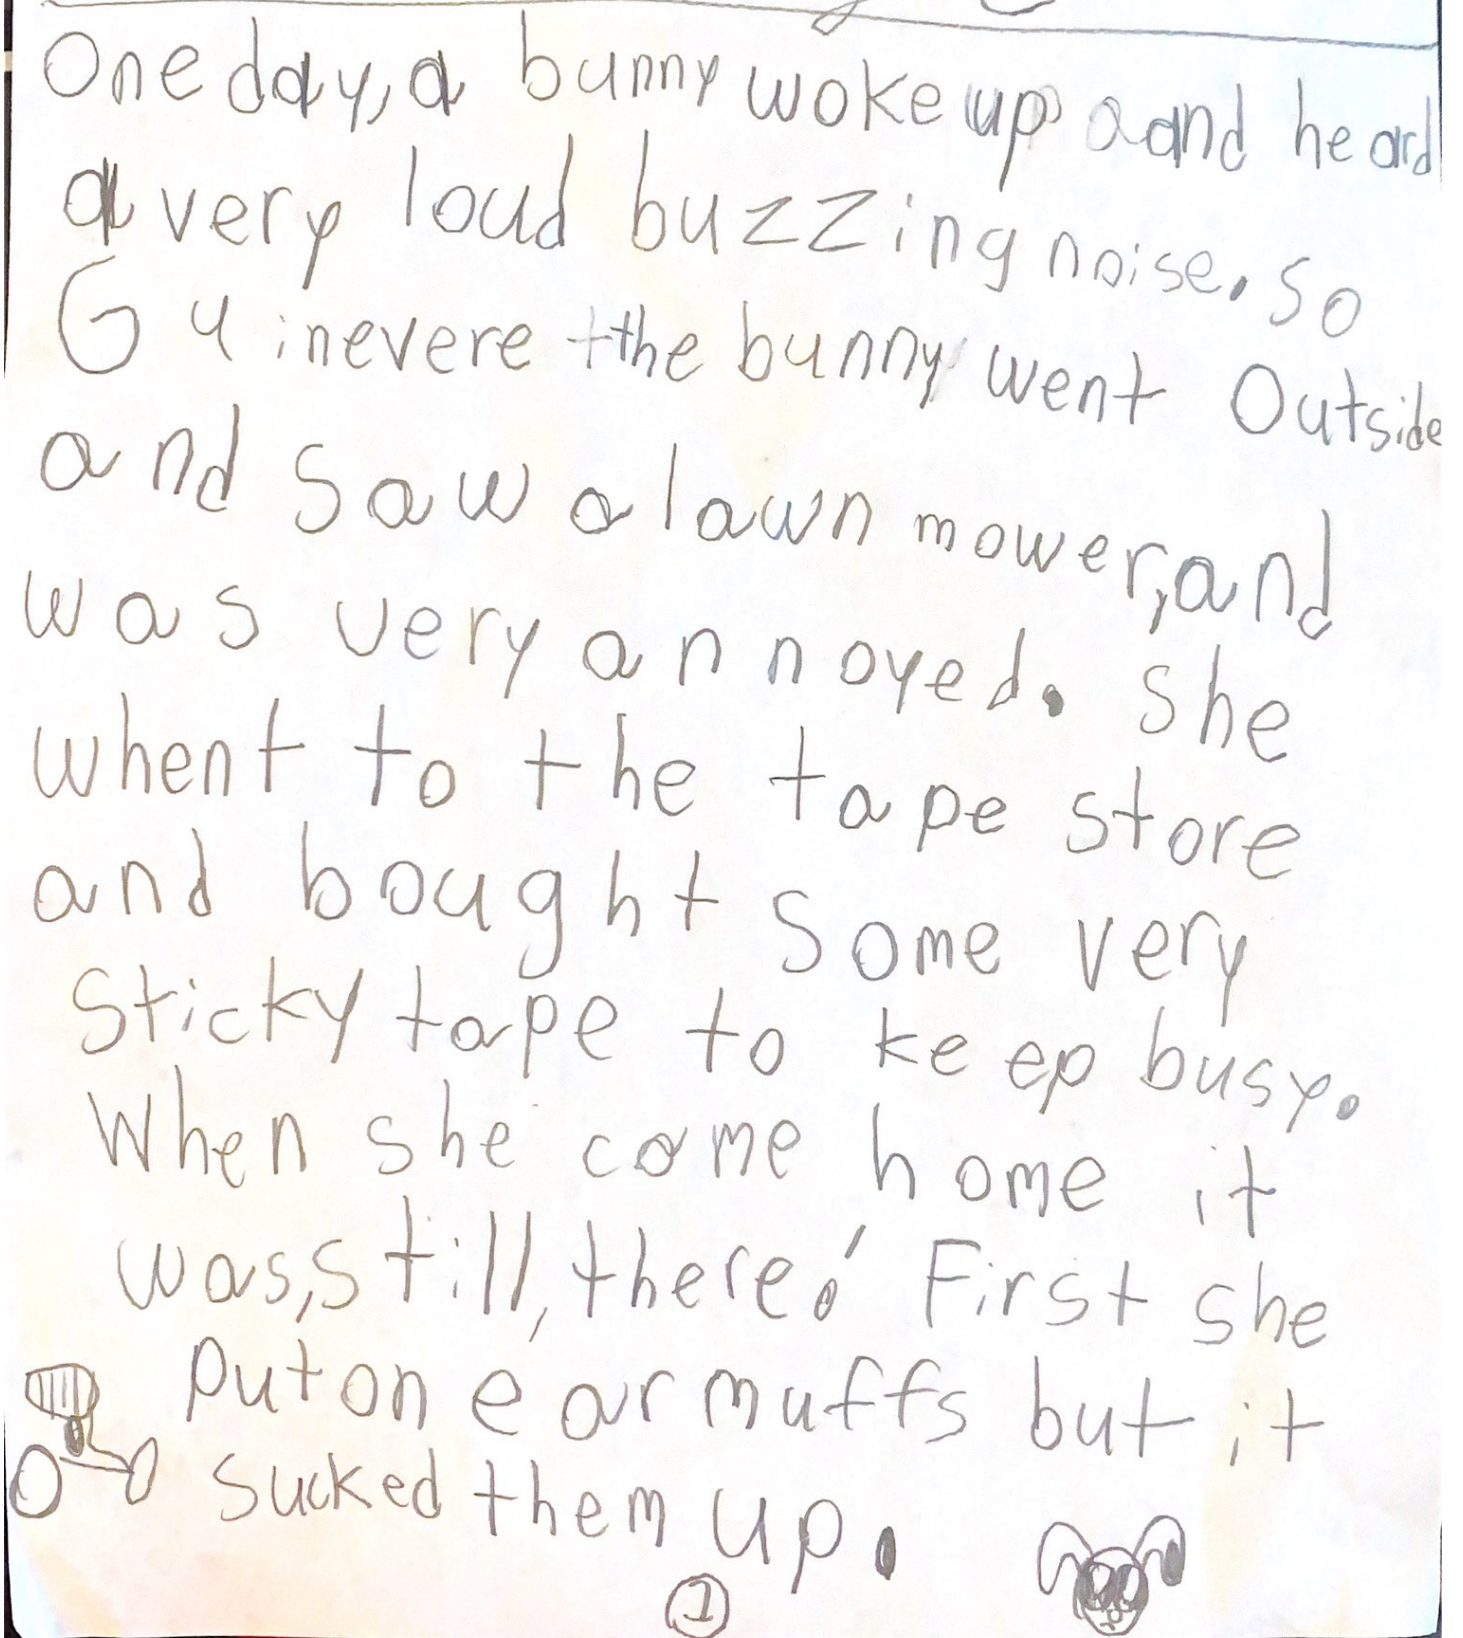 One day, a bunny woke up aand heard
a very loud buzzing noise. So
Guinevere tthe bunny went Outside
and Saw a lawn mower, and
was very annoyed. She
whent to the tape store
and bought Some very
Sticky tape to keep busy.
When she come home it
was, still, there! First she
put on ear muffs but it
sucked them up.
1